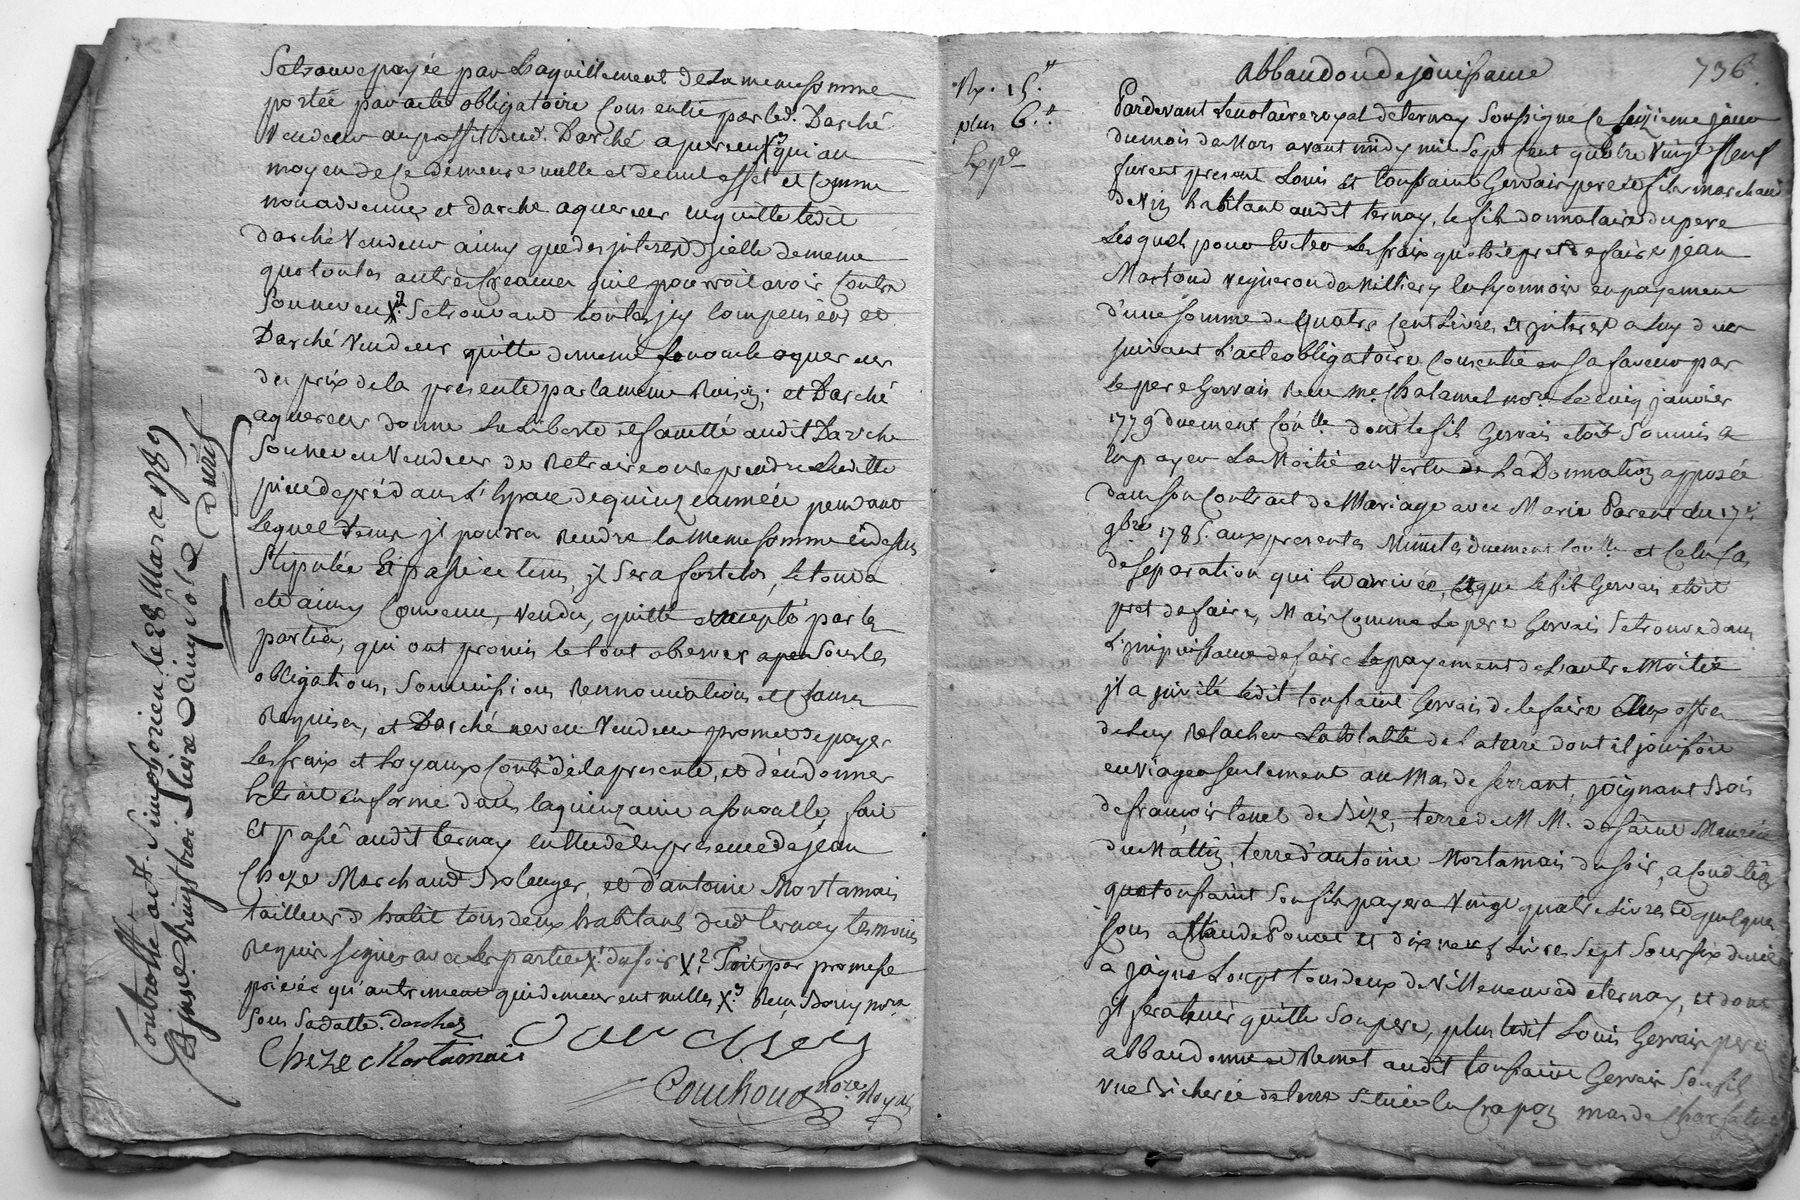 Se trouve payée par Laquittement de la meme somme
portée par acte obligatoire Consentie par led. Darché
Vendeur au proffit dud. Darché aquereur X3 qui au
moyen de ce demeure nulle et de nul effet et Comme
non advenue, et Darché aquereur en quitte ledit
Darché Vendeur ainsy que des interes d'jcelle de meme
que toutes autres Creances qu'il pourroit avoir Contre
Son neveu X2 Se trouvant toutes jcy Compensées et
Darché Vendeur quitte de meme Son oncle aquereur
du prix de la presente par la meme Raison; et Darché
aquereur donne La Liberté et faculté audit Darché
Son neveu Vendeur de Retraire ou reprendre Laditte
piece de pré dans L'Espace de quinze années pendant
Lequel temps jl pourra Rendre la meme somme cidessus
Stipulée Et passé ce tems, jl Sera forclos, Le tout a
eté ainsy Convenu, Vendu, quitté accepté par les
parties, qui ont promis le tout observer a peine Sous les
obligations, Soumissions Rennonciations et Clauses
Requises, et Darché neveu Vendeur promet de payer
Les fraix et Loyaux Couts de la presente, et d'en donner
Extrait en forme dans la quinzaine a son oncle, fait
Et passé audit ternay en Etude en presence de jean
Cheze Marchand Bolanger, et d'antoine Mortamais
tailleur d'habit tous deux habitants dud ternay temoins
Requis signés avec les parties X1 du soir X2. Soit par promesse
privée qu'autrement qui demeurent nulles X3. Reçu Boiry nore
Sous Sa datte. Darchez
Cheze Mortamais Darchez
Couchoud nore Royal
Controllé a St. Simphorien le 28 Mars 1789
Reçu Vingt trois Livres Cinq sols Duret
736
abbandon de jouissance
Rx. 15.
plus 6.
Expé
Pardevant Le notaire royal de ternay Soussigné Ce Seizieme jour
du mois de Mars avant midy mil Sept Cent quatre Vingt Neuf
furent present Louis et toussaint Gervais pere et fils marchand
de Vin habitant audit ternay, le fils donnataire du pere
Lesquels pour Eviter Les fraix qu'etoit pret de faire jean
Martoud Vigneron de Milliery En Lyonnois en payement
d'une Somme de quatre Cent Livres et jnteret a Luy dues
suivant L'acte obligatoire Consentie en Sa faveur par
Le pere Gervais Reçu Me. Chalamel nore. Le cinq janvier
1779 duement Conlle dont le fils Gervais etoit Soumis a
En payer La Moitié en Vertu de La Donnation apposée
dans Son Contrait de Mariage avec Marie Parent du 17e
9bre 1785. aux presentes Minutes duement Conlle et Ce En Cas
de Separation qui Est arrivée, Et que Le fils Gervais etoit
pret de faire, Mais Comme Le pere Gervais Se trouve dans
L'jmpuissance de faire Le payement de L'autre Moitié
jl a jnvité ledit toussaint Gervais de le faire aux offres
de Luy Relacher La totalité de La terre dont il jouissoit
en Viager Seulement au Mas de ferrant, joignant Bois
de francois tenet de Bize, terre de M M. de Saint Maurice
du Mattin, terre d'antoine Mortamais du Soir, a Condition
que toussaint Son fils payera Vingt quatre Livres et quelques
Sous a Claude Poncet et dix neuf Livres Sept Sous Six deniers
a jaques Loupt tous deux de Villeneuve et ternay, et dont
jl fera tenir quitte Son pere, plus ledit Louis Gervais pere
abbandonne et Remet audit toussaint Gervais Son fils
Une Bicherée de terre Située En Crapon mas de